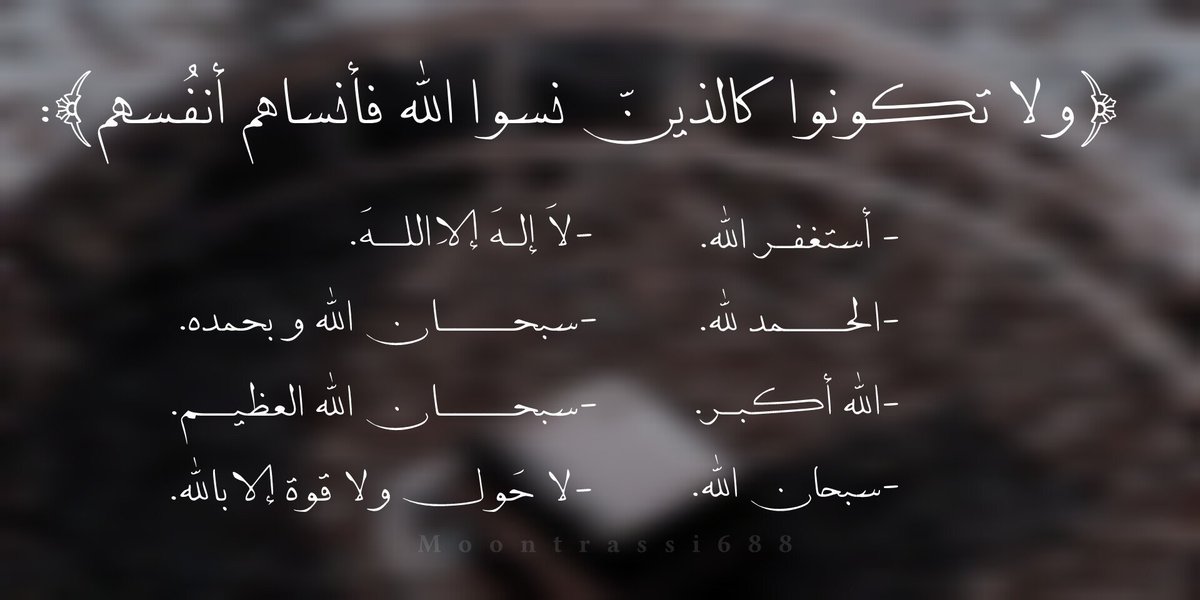 ﴿ولا تكونوا كالذينّ نسوا الله فأنساهم أنفُسهم﴾:
- أستغفر الله.
-الحمد لله.
-الله أكبر.
-سبحان الله.
-لاَ إلهَ إلا اللهَ.
-سبحان الله و بحمده.
-سبحان الله العظيم.
-لا حَول ولا قوة إلا بالله.
Moontrassi688